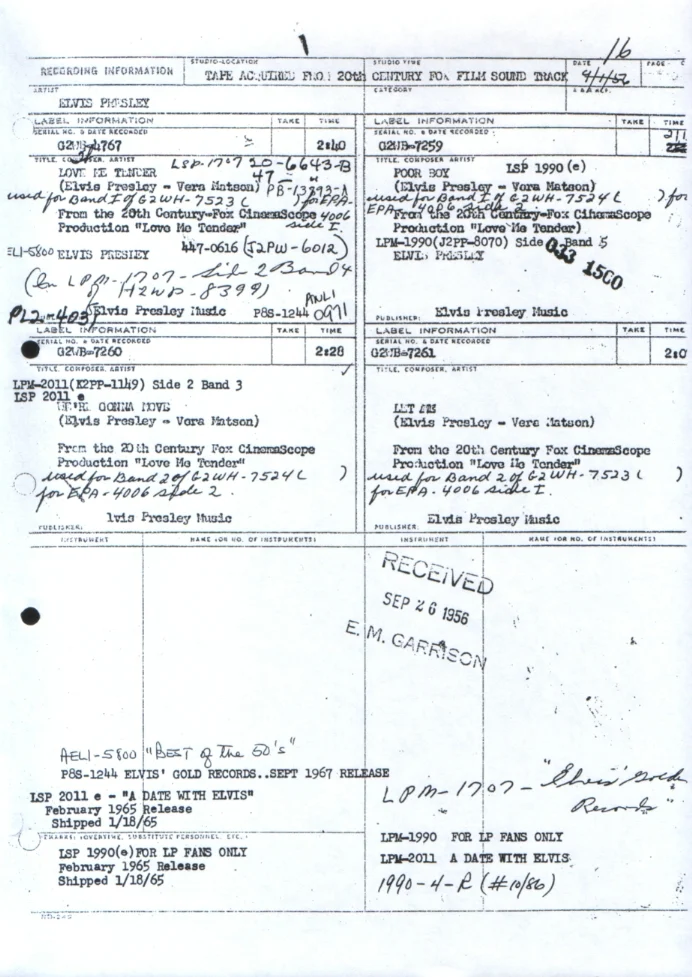 1
16
RECORDING INFORMATION
STUDIO-LOCATION
TAPE ACQUIRED FROM 20th CENTURY FOX FILM SOUND TRACK
STUDIO TIME
DATE
PAGE
ARTIST
ELVIS PRESLEY
CATEGORY
LABEL INFORMATION TAKE TIME
SERIAL NO. & DATE RECORDED
G2WB-4767 2:40
TITLE, COMPOSER, ARTIST
LSP-1707 20-6643-B
LOVE ME TENDER 47
(Elvis Presley - Vera Matson)
used for Band I of G2WH-7523 ( ) for EPA-
From the 20th Century-Fox CinemaScope 4006
Production "Love Me Tender" side I.
447-0616 (J2PW-6012)
ELI-5800 ELVIS PRESLEY
(In LPM-1707-Side 2 Band 4
H2WP-8399)
ANLI
0971
Elvis Presley Music P8S-1244
LABEL INFORMATION TAKE TIME
SERIAL NO. & DATE RECORDED
G2WB-7259
TITLE, COMPOSER ARTIST
POOR BOY LSP 1990 (e)
(Elvis Presley - Vera Matson)
used for Band I of G2WH-7524 ( ) for
EPA-4006 side 2
From the 20th Century-Fox CinemaScope
Production "Love Me Tender)
LPM-1990(J2PP-8070) Side Band 5
ELVIS PRESLEY
1500
PUBLISHER: Elvis Presley Music
LABEL INFORMATION TAKE TIME
SERIAL NO. & DATE RECORDED
G2WB-7260 2:28
TITLE, COMPOSER, ARTIST
LPM-2011(K2PP-1149) Side 2 Band 3
LSP 2011 e
WE'RE GONNA MOVE
(Elvis Presley - Vera Matson)
From the 20th Century Fox CinemaScope
Production "Love Me Tender"
used for Band 2 of G2WH-7524 ( )
for EPA-4006 side 2.
PUBLISHER: lvis Presley Music
LABEL INFORMATION TAKE TIME
SERIAL NO. & DATE RECORDED
G2WB-7261 2:0
TITLE, COMPOSER, ARTIST
LET ME
(Elvis Presley - Vera Matson)
From the 20th Century Fox CinemaScope
Production "Love Me Tender"
used for Band 2 of G2WH-7523 ( )
for EPA-4006 side I.
PUBLISHER: Elvis Presley Music
INSTRUMENT NAME (OR NO. OF INSTRUMENTS) INSTRUMENT NAME (OR NO. OF INSTRUMENTS)
RECEIVED
SEP 26 1956
E. M. GARRISON
AEL1-5800 "BEST of the 50's"
P8S-1244 ELVIS' GOLD RECORDS..SEPT 1967 RELEASE
LSP 2011 e - "A DATE WITH ELVIS"
February 1965 Release
Shipped 1/18/65
REMARKS: (OVERTIME, SUBSTITUTE PERSONNEL, ETC.)
LSP 1990(e)FOR LP FANS ONLY
February 1965 Release
Shipped 1/18/65
LPM-1707- "Elvis' Golden
Records"
LPM-1990 FOR LP FANS ONLY
LPM-2011 A DATE WITH ELVIS
1990-4-R (#10/86)